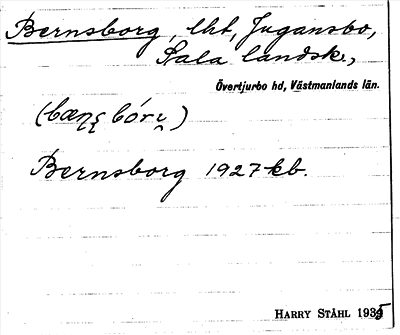 Bernsborg, lht, Jugansbo,
Sala landsk.,
Övertjurbo hd, Västmanlands län.
Bernsborg 1927 kb.
HARRY STÅHL 1935